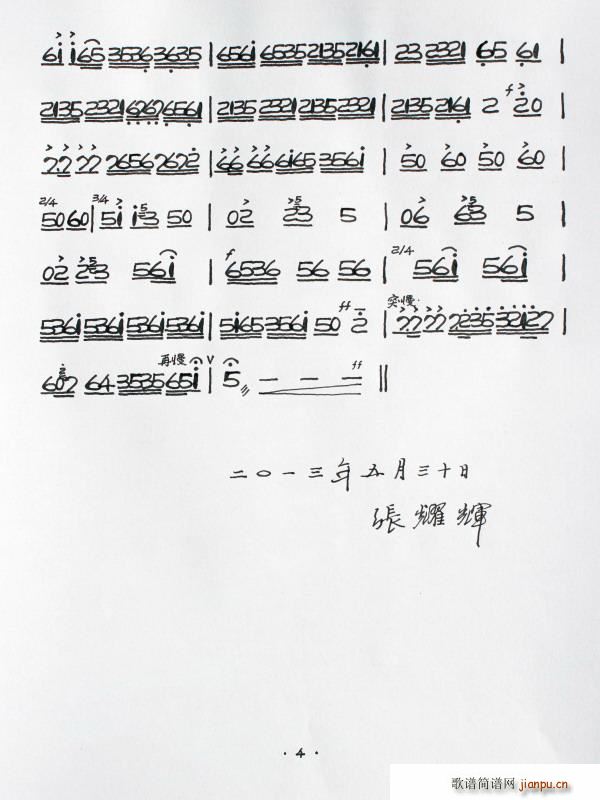 6i i65 3536 3635 | 656i 6535 2135 2161 | 23 2321 65 61 |
2135 2321 6267 6561 | 2135 2321 2135 2321 | 2135 2161 2 f 20 |
22 22 2656 2672 | 66 66 6i65 356i | 50 60 50 60 |
2/4 50 60 | 3/4 5i i53 50 | 02 5 5 | 06 5 |
02 56i | f 6536 56 56 | 2/4 56i 56i |
536i 536i 536i 536i | 5i65 356i 50 ff 2 | 突慢. 22 22 2235 32i27 |
再慢 V ff
6 64 3535 65i | 5 — — — ||
二〇一三年五月三十日
張耀輝
· 4 ·
歌谱简谱网 jianpu.cn